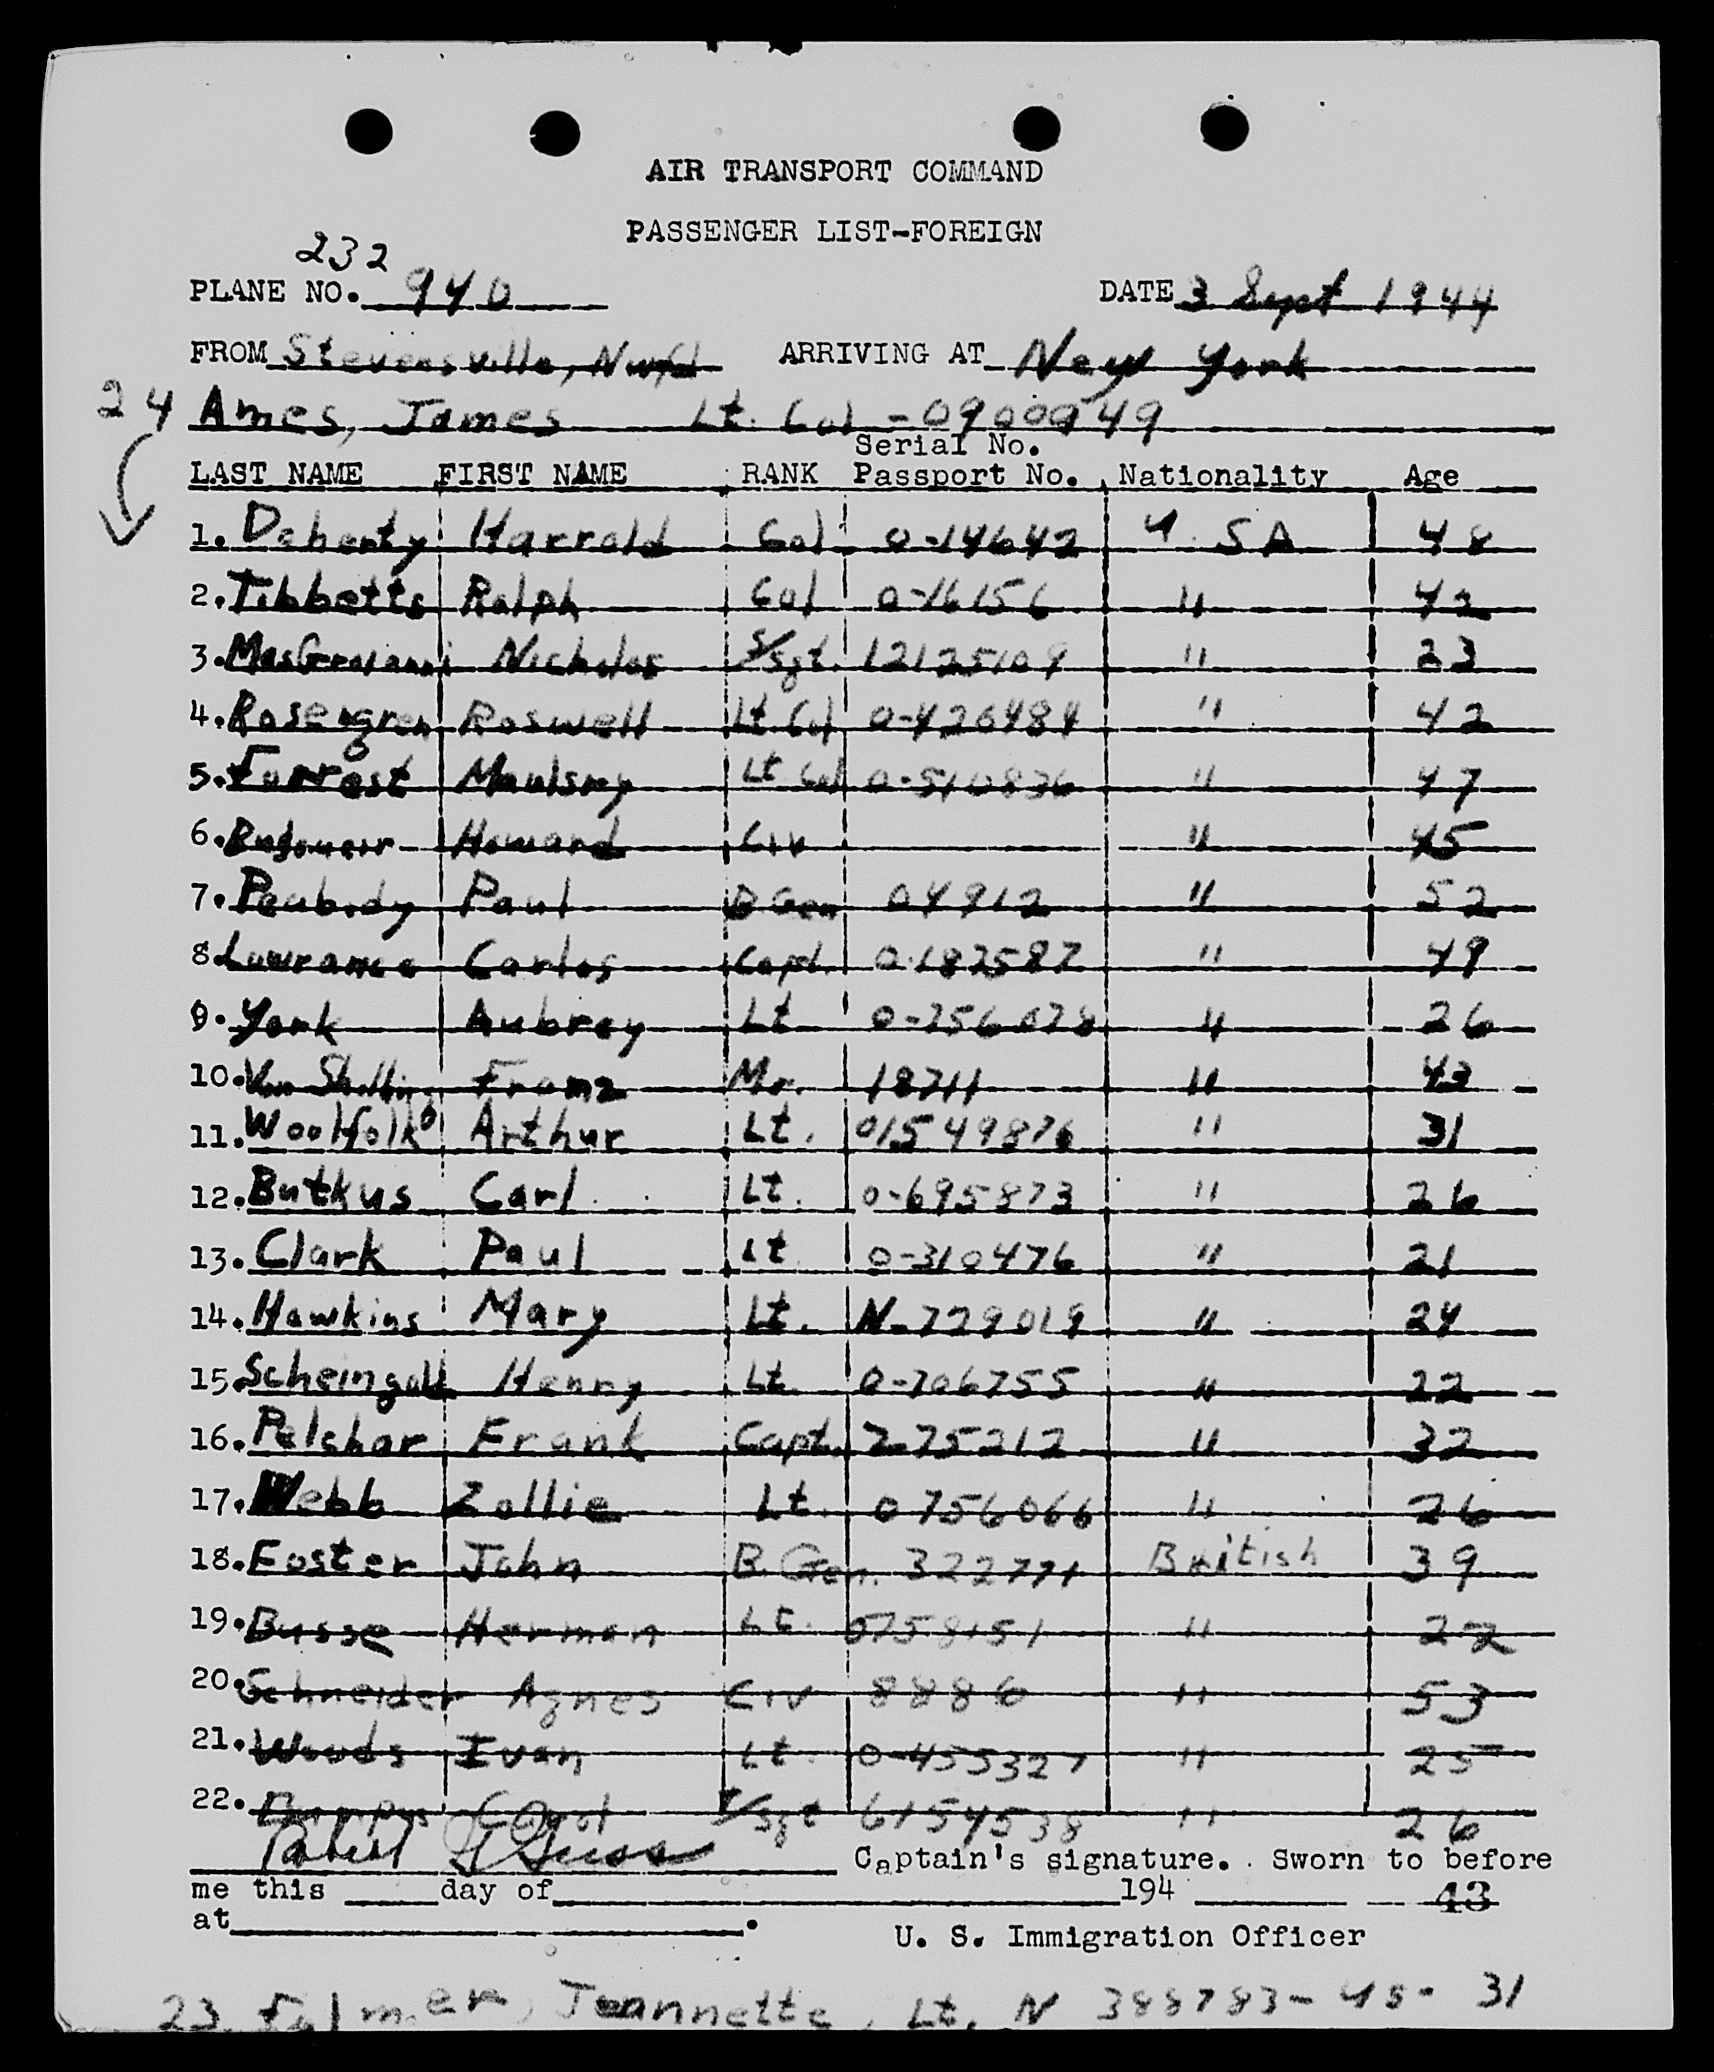 AIR TRANSPORT COMMAND
PASSENGER LIST-FOREIGN
232
PLANE NO. 940 DATE 3 Sept 1944
FROM Stevensville, Nwfd ARRIVING AT New York
24 Ames, James Lt. Col - 0900949
Serial No.
LAST NAME FIRST NAME RANK Passport No. Nationality Age
1. Doherty Harrold Col 0-14642 U.SA 48
2. Tibbetts Ralph Col 0-16156 " 42
3. Nicholas S/Sgt. 12125109 " 23
4. Rosengren Roswell Lt Col 0-426484 " 42
5. Forrest Maulsry Lt Col 0-510836 " 47
6. Howard Civ " 45
7. Peabody Paul B Gen 04912 " 52
8. Lawrance Carlos Capt. 0-182587 " 49
9. York Aubrey Lt 0-756078 " 26
10. Van Franz Mr. 18711 " 43
11. Woolfolk Arthur Lt. 01549876 " 31
12. Butkus Carl Lt. 0-695873 " 26
13. Clark Paul Lt 0-310476 " 21
14. Hawkins Mary Lt. N-729019 " 24
15. Henry Lt. 0-706755 " 22
16. Pelchar Frank Capt. 2-75212 " 32
17. Webb Zollie Lt. 0756066 " 26
18. Foster John B. Gen. 322771 British 39
19. Busse Herman Lt. 0758151 " 22
20. Schneider Agnes Civ 8886 " 53
21. Woods Ivan Lt. 0-455327 " 25
22. T/Sgt 6154538 " 26
Captain's signature. Sworn to before
me this day of 194 43
at .
U. S. Immigration Officer
23 Fulmer, Jeannette, Lt. N 388783-US- 31